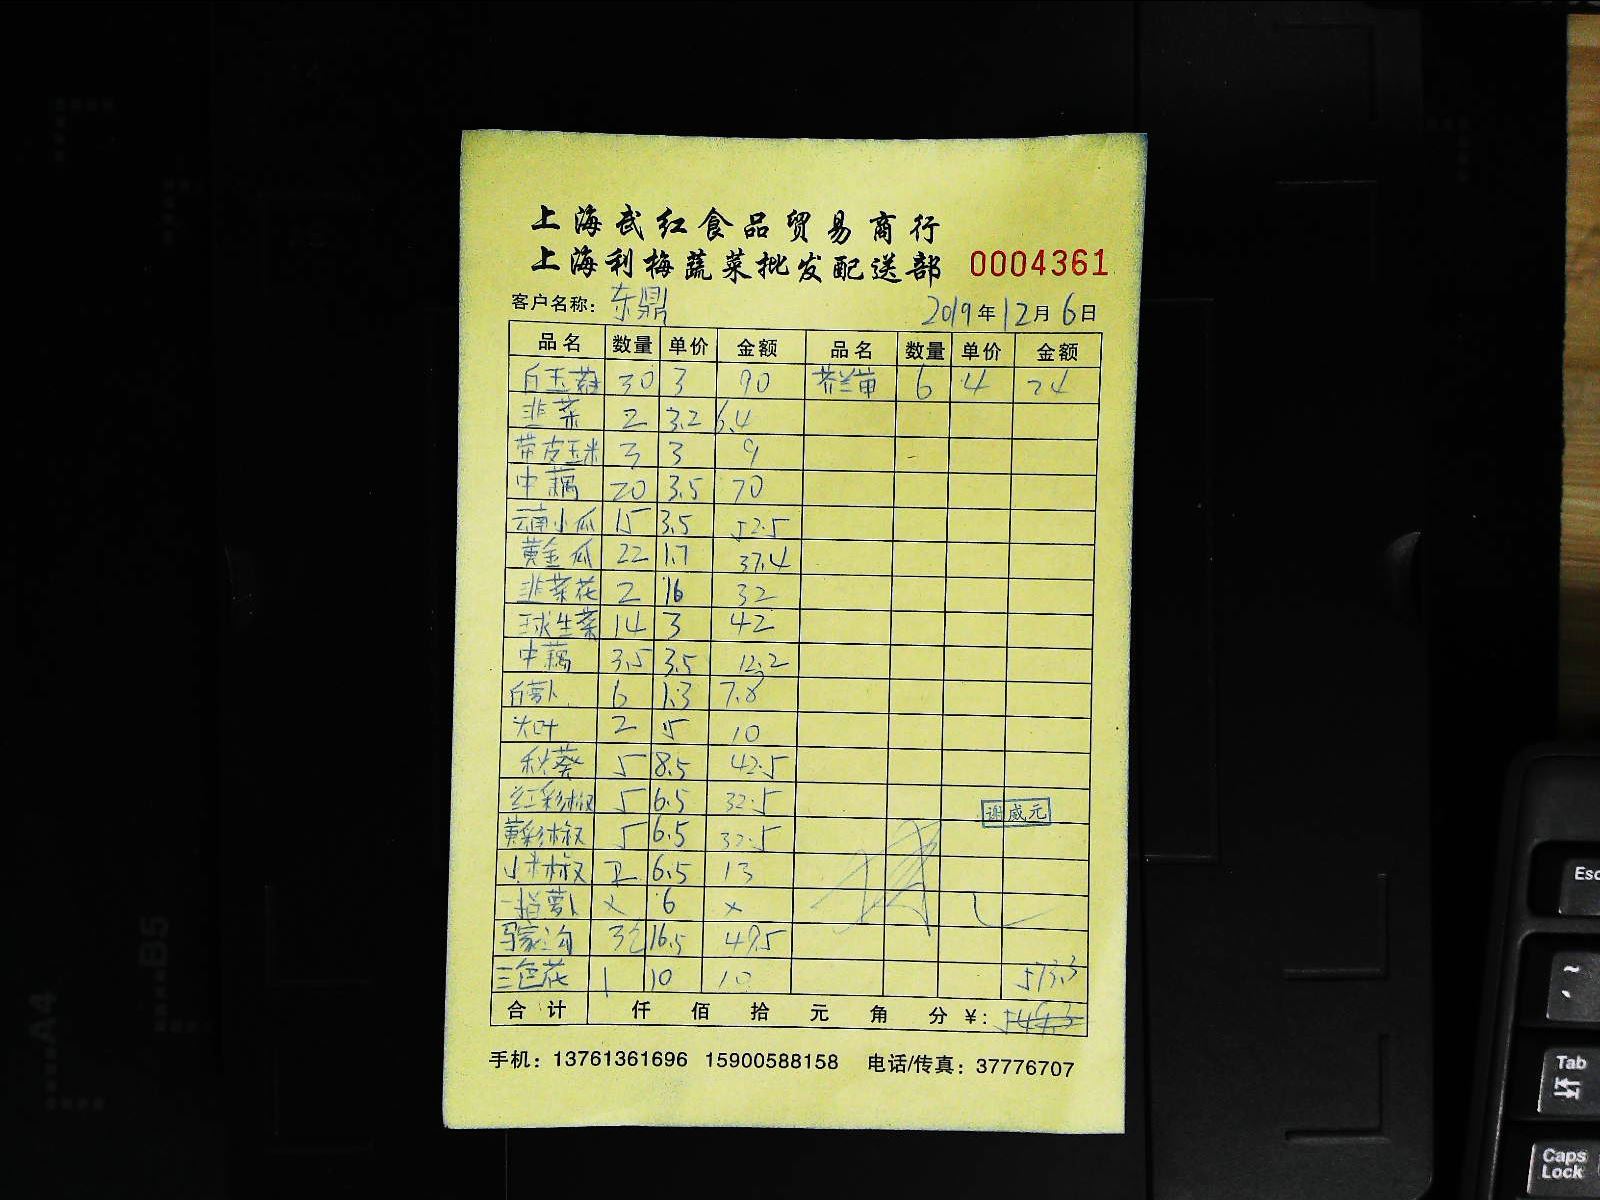 上海武红食品贸易商行
上海利梅蔬菜批发配送部 0004361
客户名称: 东鼎 2019年12月6日
品名 数量 单价 金额 品名 数量 单价 金额
白玉菇 30 3 90 芥兰苗 6 4 24
韭菜 2 3.2 6.4
带皮玉米 3 3 9
中藕 20 3.5 70
云南小瓜 15 3.5 52.5
黄金瓜 22 1.7 37.4
韭菜花 2 16 32
球生菜 14 3 42
中藕 3.5 3.5 12.2
白萝卜 6 1.3 7.8
大叶 2 5 10
秋葵 5 8.5 42.5
红彩椒 5 6.5 32.5
谢威元
黄彩椒 5 6.5 32.5
小米椒 2 6.5 13
一指萝卜 × 6 ×
马家沟 3 16.5 49.5
三色花 1 10 10 573.3
合计 仟 佰 拾 元 角 分 ¥:
手机: 13761361696 15900588158 电话/传真: 37776707